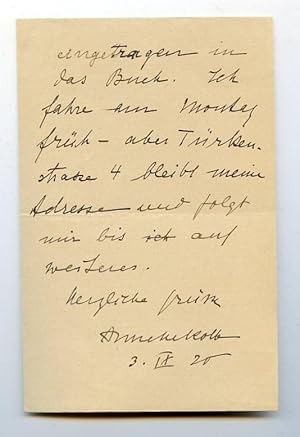 eingetragen in
das Buch. Ich
fahre am Montag
früh – aber Türken-
strasse 4 bleibt meine
Adresse und folgt
mir bis ich auf
weiteres.
Herzliche Grüsse
Annette Kolb
3. IX 20